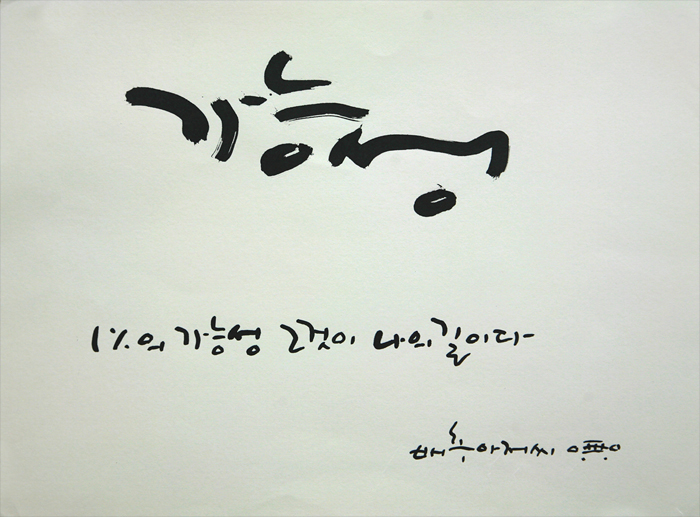 가능성
1%의 가능성 그것이 나의 길이다
배추아저씨